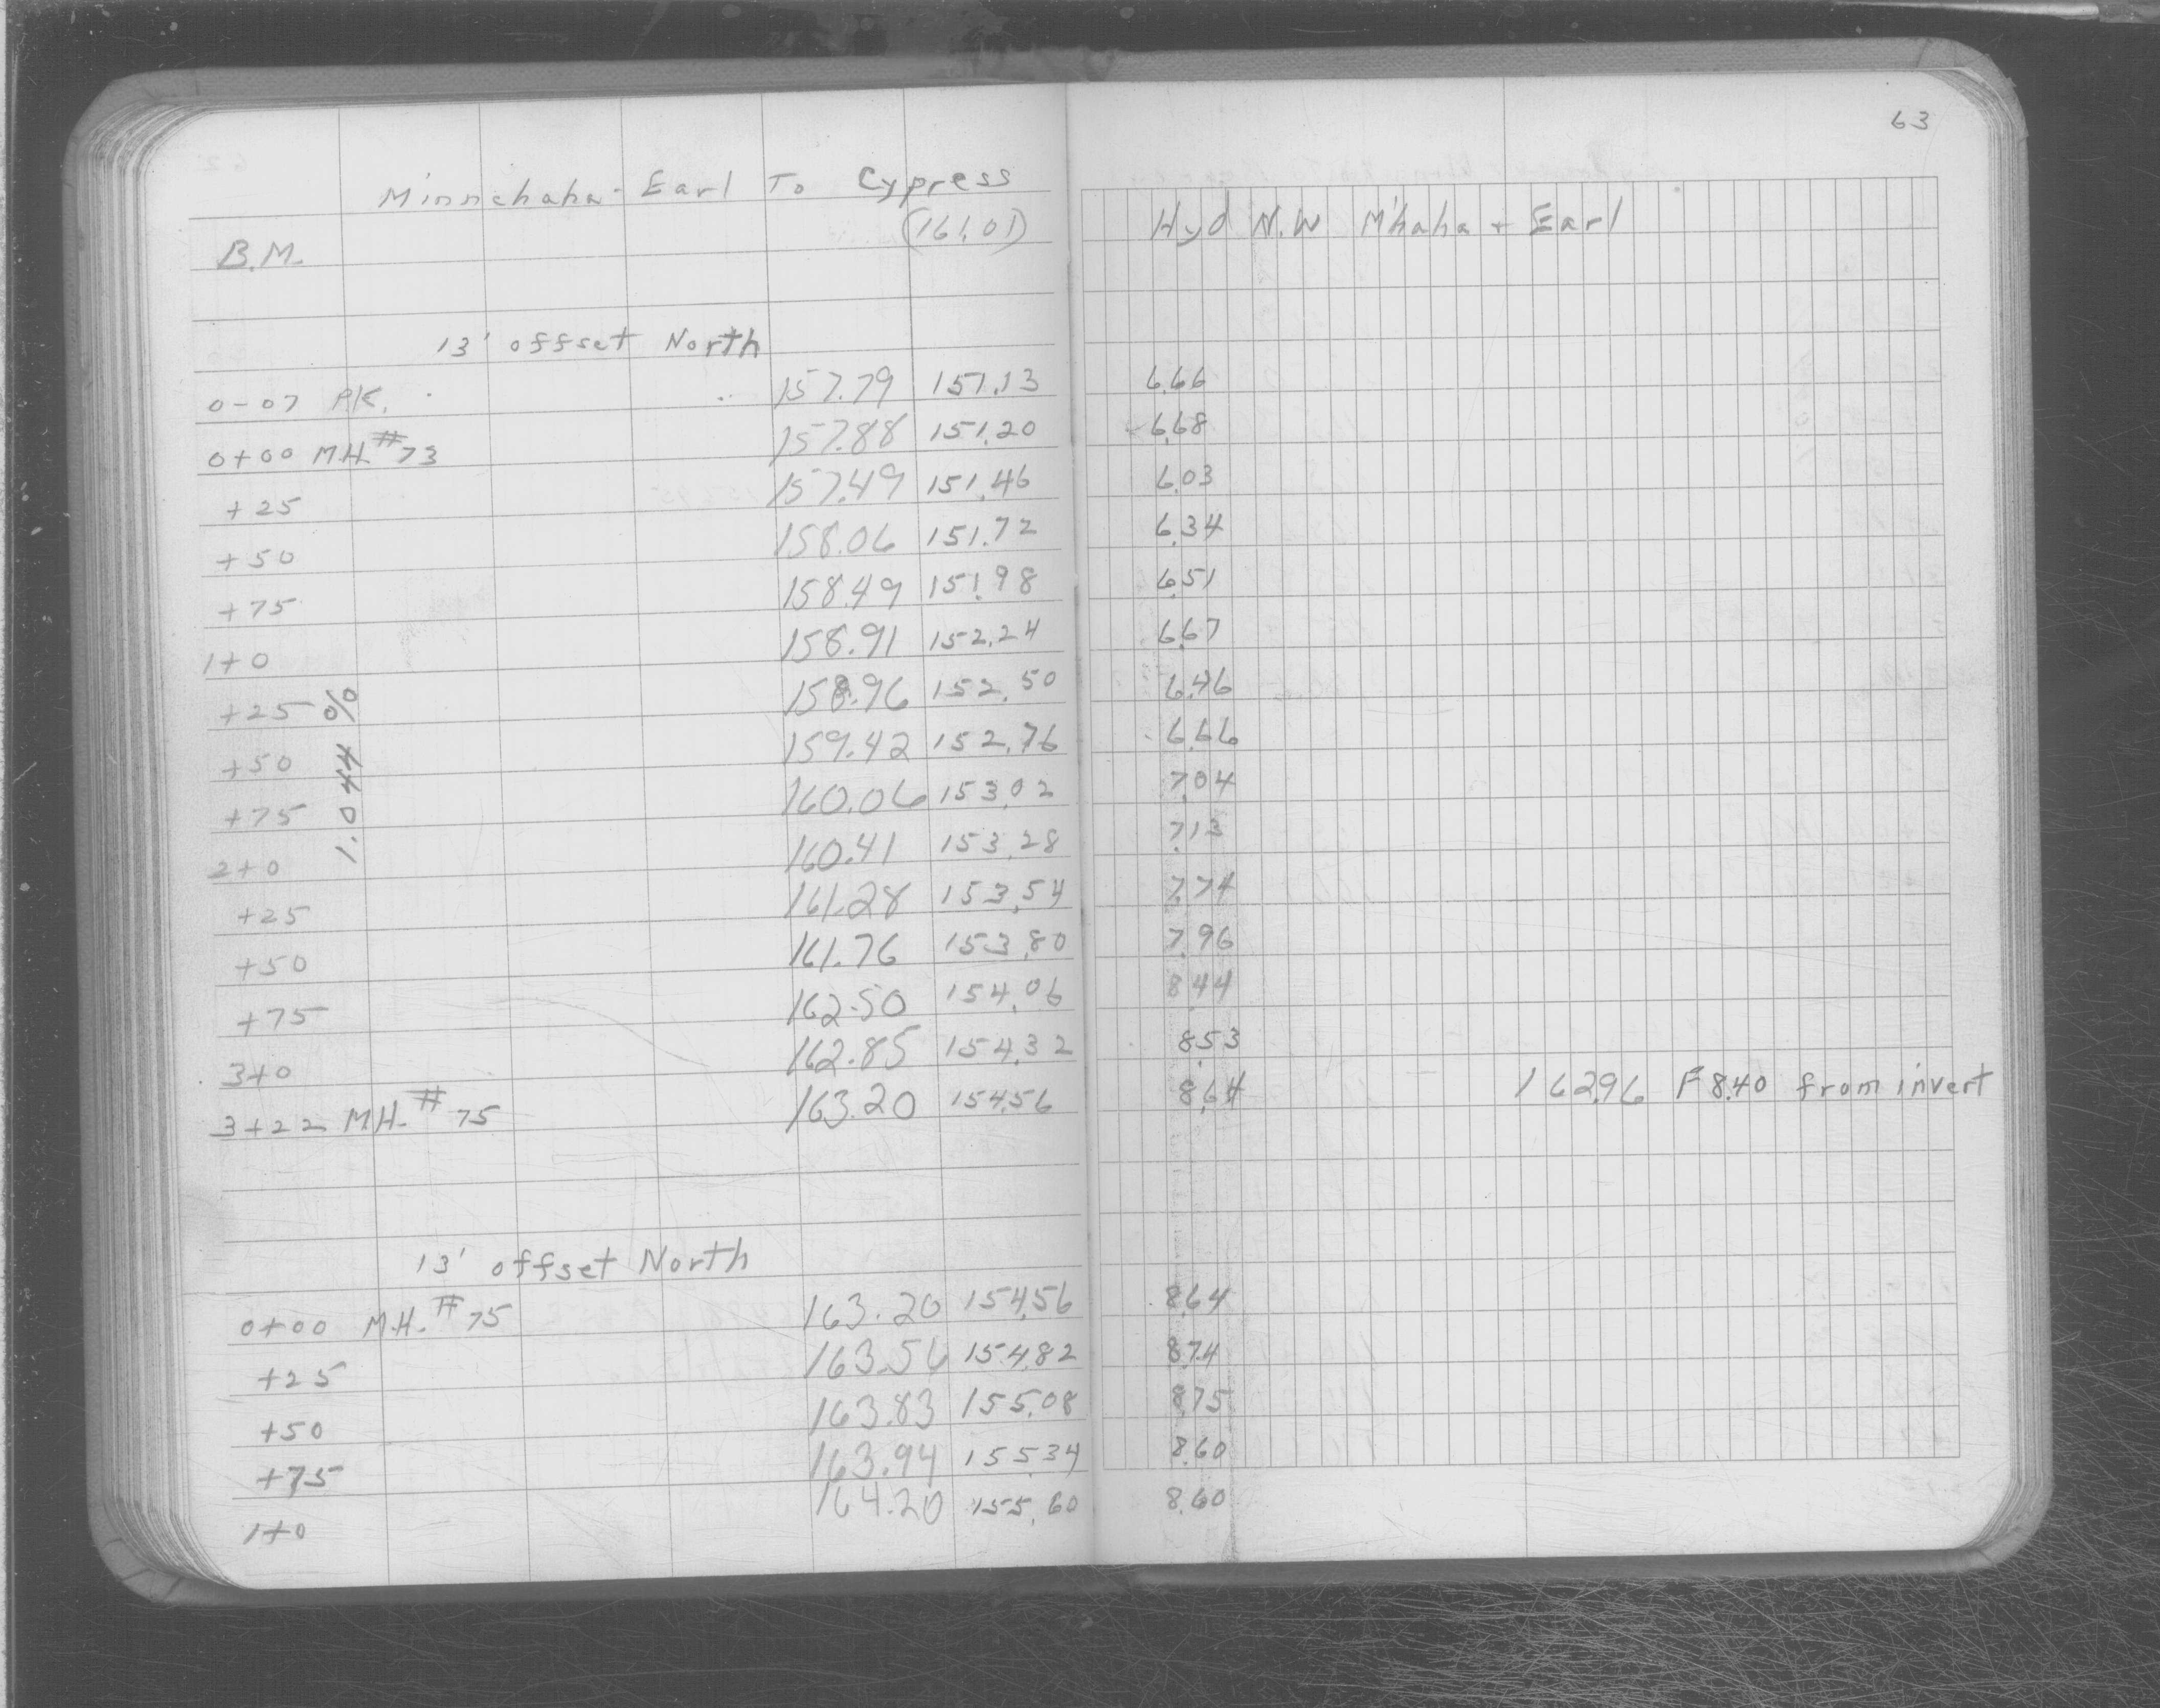 63
Minnehaha - Earl To Cypress
B.M. (161.01) Hyd N.W M'haha + Earl
13' offset North
0-07 P.K. 157.79 151.13 6.66
0+00 M.H. #73 157.88 151.20 6.68
+25 157.49 151.46 6.03
+50 158.06 151.72 6.34
+75 158.49 151.98 6.51
1+0 158.91 152.24 6.67
+25 158.96 152.50 6.46
+50 159.42 152.76 6.66
+75 160.06 153.02 7.04
1.044 %
2+0 160.41 153.28 7.13
+25 161.28 153.54 7.74
+50 161.76 153.80 7.96
+75 162.50 154.06 8.44
3+0 162.85 154.32 8.53
3+22 M.H. #75 163.20 154.56 8.64 162.96 F 8.40 from invert
13' offset North
0+00 M.H. #75 163.20 154.56 8.64
+25 163.56 154.82 8.74
+50 163.83 155.08 8.75
+75 163.94 155.34 8.60
1+0 164.20 155.60 8.60